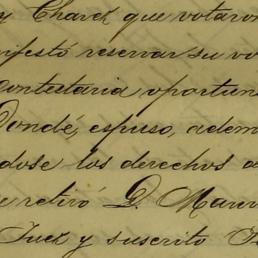 y Chavez que votaron
nifestó reservar su vo
contestaria oportun
Dondé, espuso, adem
dose los derechos a
e retiró D. Manu
Juez y suscrito